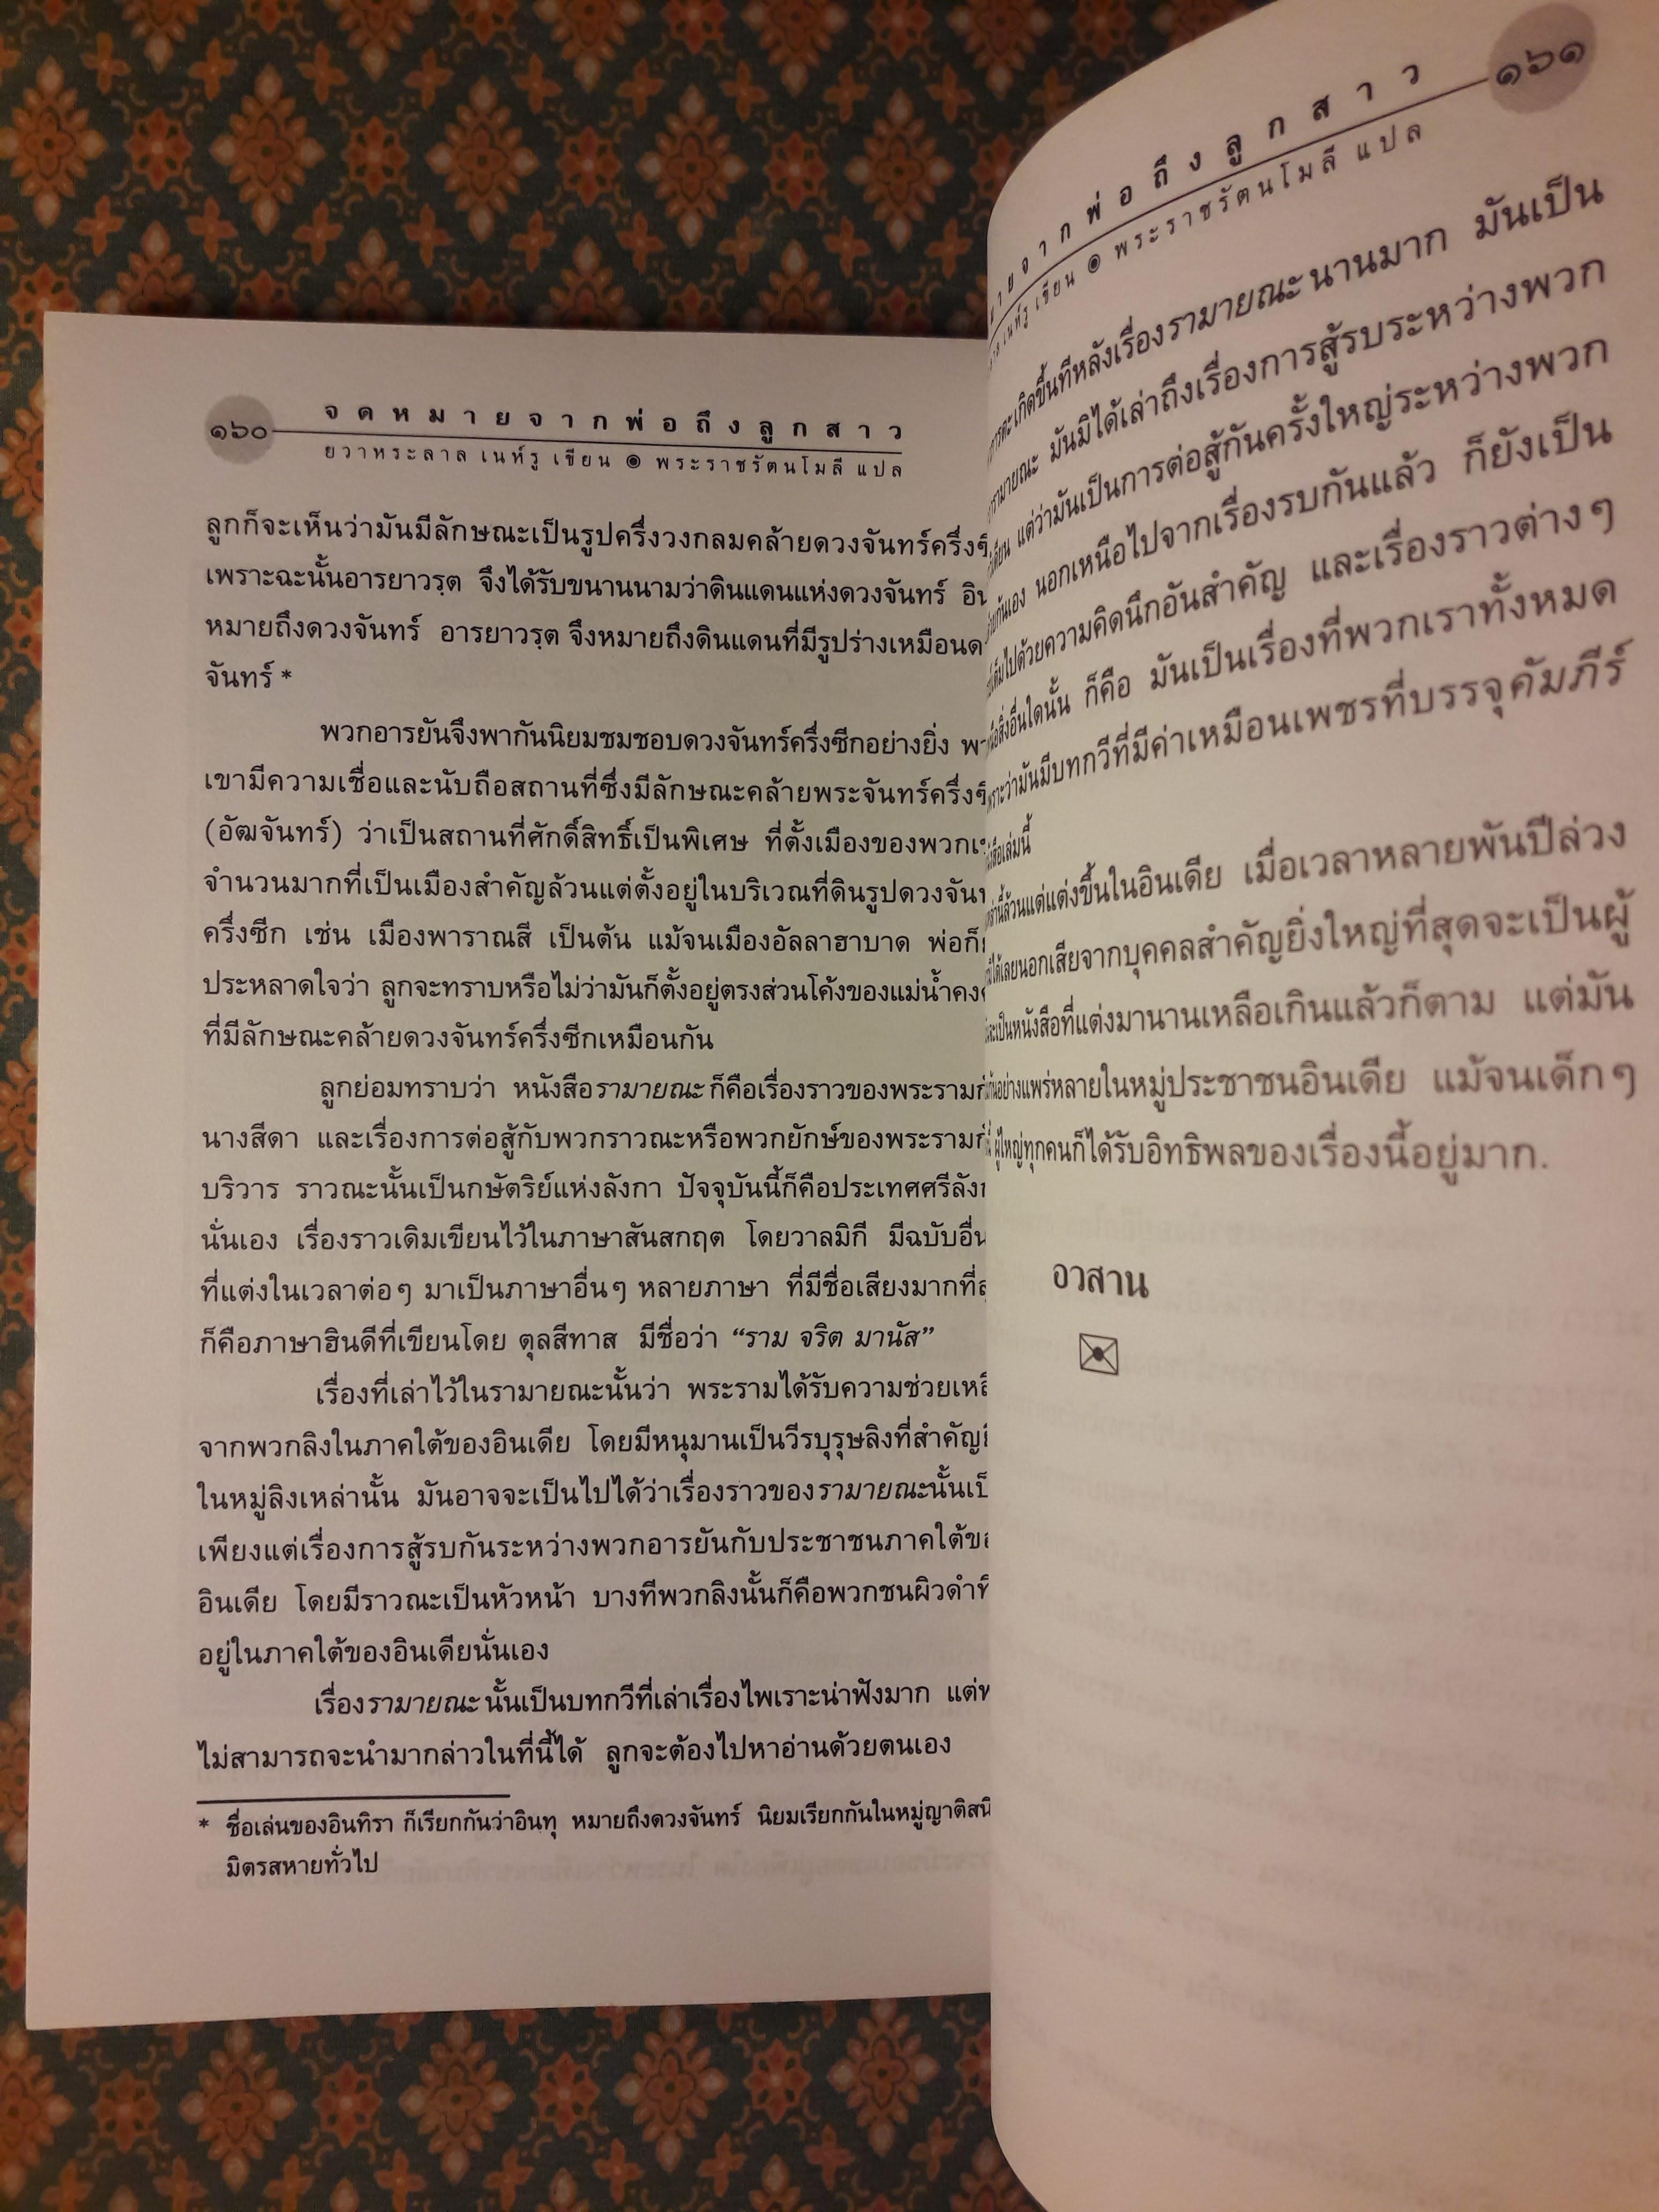 ๑๖๐
จดหมายจากพ่อถึงลูกสาว
ยวาหระลาล เนห์รู เขียน ๏ พระราชรัตนโมลี แปล
ลูกก็จะเห็นว่ามันมีลักษณะเป็นรูปครึ่งวงกลมคล้ายดวงจันทร์ครึ่ง
เพราะฉะนั้นอารยาวรฺต จึงได้รับขนานนามว่าดินแดนแห่งดวงจันทร์
หมายถึงดวงจันทร์ อารยาวรฺต จึงหมายถึงดินแดนที่มีรูปร่างเหมือน
จันทร์ *
พวกอารยันจึงพากันนิยมชมชอบดวงจันทร์ครึ่งซีกอย่างยิ่ง
เขามีความเชื่อและนับถือสถานที่ซึ่งมีลักษณะคล้ายพระจันทร์ครึ่ง
(อัฒจันทร์) ว่าเป็นสถานที่ศักดิ์สิทธิ์เป็นพิเศษ ที่ตั้งเมืองของพวก
จำนวนมากที่เป็นเมืองสำคัญล้วนแต่ตั้งอยู่ในบริเวณที่ดินรูปดวง
ครึ่งซีก เช่น เมืองพาราณสี เป็นต้น แม้จนเมืองอัลลาฮาบาด พ่อก็
ประหลาดใจว่า ลูกจะทราบหรือไม่ว่ามันก็ตั้งอยู่ตรงส่วนโค้งของแม่น้ำ
ที่มีลักษณะคล้ายดวงจันทร์ครึ่งซีกเหมือนกัน
ลูกย่อมทราบว่า หนังสือรามายณะก็คือเรื่องราวของพระราม
นางสีดา และเรื่องการต่อสู้กับพวกราวณะหรือพวกยักษ์ของพระราม
บริวาร ราวณะนั้นเป็นกษัตริย์แห่งลังกา ปัจจุบันนี้ก็คือประเทศ
นั่นเอง เรื่องราวเดิมเขียนไว้ในภาษาสันสกฤต โดยวาลมิกี มีฉบับอื่น
ที่แต่งในเวลาต่อๆ มาเป็นภาษาอื่นๆ หลายภาษา ที่มีชื่อเสียงมาก
ก็คือภาษาฮินดีที่เขียนโดย ตุลสีทาส มีชื่อว่า “ราม จริต มานัส”
เรื่องที่เล่าไว้ในรามายณะนั้นว่า พระรามได้รับความ
จากพวกลิงในภาคใต้ของอินเดีย โดยมีหนุมานเป็นวีรบุรุษลิงที่สำคัญ
ในหมู่ลิงเหล่านั้น มันอาจจะเป็นไปได้ว่าเรื่องราวของรามายณะนั้น
เพียงแต่เรื่องการสู้รบกันระหว่างพวกอารยันกับประชาชนภาคใต้
อินเดีย โดยมีราวณะเป็นหัวหน้า บางทีพวกลิงนั้นก็คือพวกชนผิวดำ
อยู่ในภาคใต้ของอินเดียนั่นเอง
เรื่องรามายณะนั้นเป็นบทกวีที่เล่าเรื่องไพเราะน่าฟังมาก
ไม่สามารถจะนำมากล่าวในที่นี้ได้ ลูกจะต้องไปหาอ่านด้วยตนเอง
* ชื่อเล่นของอินทิรา ก็เรียกกันว่าอินทุ หมายถึงดวงจันทร์ นิยมเรียกกันในหมู่ญาติ
มิตรสหายทั่วไป
๑๖๑
จากพ่อถึงลูกสาว
เนห์รู เขียน ๏ พระราชรัตนโมลี แปล
เกิดขึ้นทีหลังเรื่องรามายณะนานมาก มันเป็น
รามายณะ มันมิได้เล่าถึงเรื่องการสู้รบระหว่างพวก
แต่ว่ามันเป็นการต่อสู้กันครั้งใหญ่ระหว่างพวก
กันเอง นอกเหนือไปจากเรื่องรบกันแล้ว ก็ยังเป็น
ไปด้วยความคิดนึกอันสำคัญ และเรื่องราวต่างๆ
สิ่งอื่นใดนั้น ก็คือ มันเป็นเรื่องที่พวกเราทั้งหมด
ว่ามันมีบทกวีที่มีค่าเหมือนเพชรที่บรรจุคัมภีร์
เล่มนี้
ล้วนแต่แต่งขึ้นในอินเดีย เมื่อเวลาหลายพันปีล่วง
นอกเสียจากบุคคลสำคัญยิ่งใหญ่ที่สุดจะเป็นผู้
เป็นหนังสือที่แต่งมานานเหลือเกินแล้วก็ตาม แต่มัน
อย่างแพร่หลายในหมู่ประชาชนอินเดีย แม้จนเด็กๆ
ผู้ใหญ่ทุกคนก็ได้รับอิทธิพลของเรื่องนี้อยู่มาก.
อวสาน